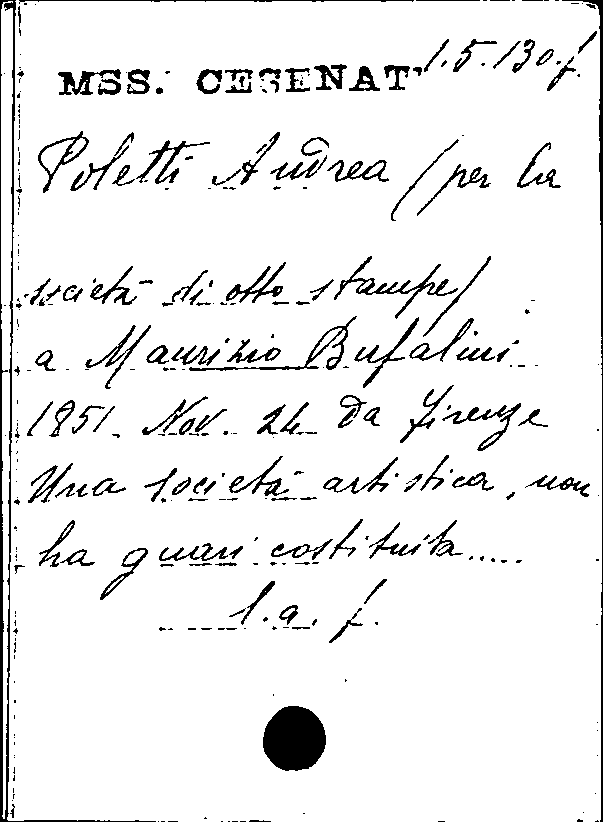 MSS. CESENAT. 1.5.130.f.
Poletti Andrea (per la
società di otto stampe)
a Maurizio Bufalini
1851. Nov. 24 da Firenze
Una società artistica, non
ha guari costituita.....
l.a.f.